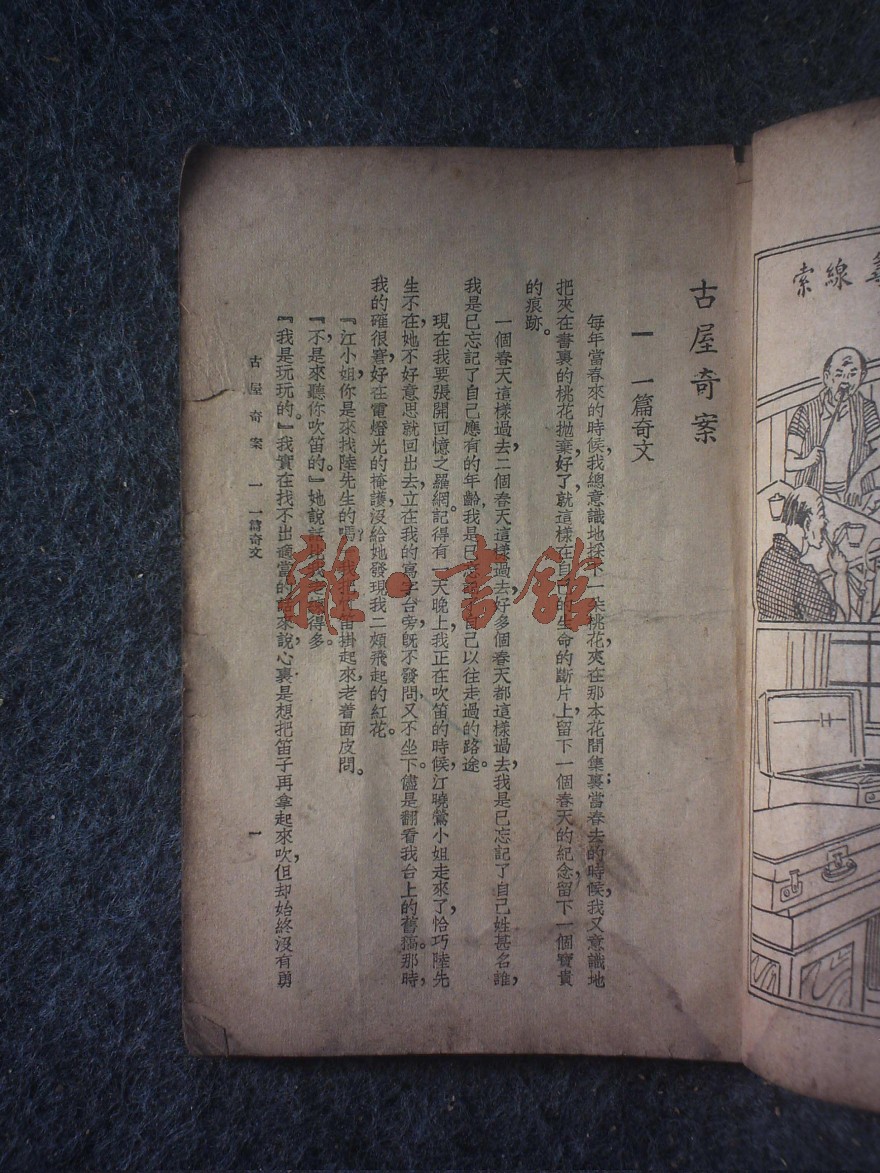 尋線索
古屋奇案
一　一篇奇文
每年當春來的時候，我總意識地採下一朵桃花，夾在那本花間集裏；當春去的時候，我又意識地
把夾在書裏的桃花拋棄，好了，就這樣在自己的生命的斷片上，留下一個春天的紀念，留下一個寶貴
的痕跡。
一個春天這樣過去，二個春天這樣過去，好多個春天都這樣過去，我是已忘記了自己姓甚名誰，
我是已忘記了自己應有的年齡，我是已忘記了自己以往走過的路途。
現在我要張開回憶之羅網。記得有一天晚上，我正在吹笛的時候，江曉鶯小姐走來了，恰巧陸先
生不在，她不好意思就回出去，立在我的寫字台旁，旣不發問，又不坐下。儘是翻看我台上的舊稿。那時，
我的確很窘，好在電燈光的掩護，沒給她發現我二頰飛起的紅花。
『江小姐，你是來找陸先生的嗎？』我把笛掛起來，老着面皮問。
『不是，來聽你吹笛的。』她說話得多。
『我是玩玩的。』我實在找不出適當的話來說，心裏是想把笛子再拿起來吹，但却始終沒有勇
古屋奇案　一　一篇奇文
一
雜·書館